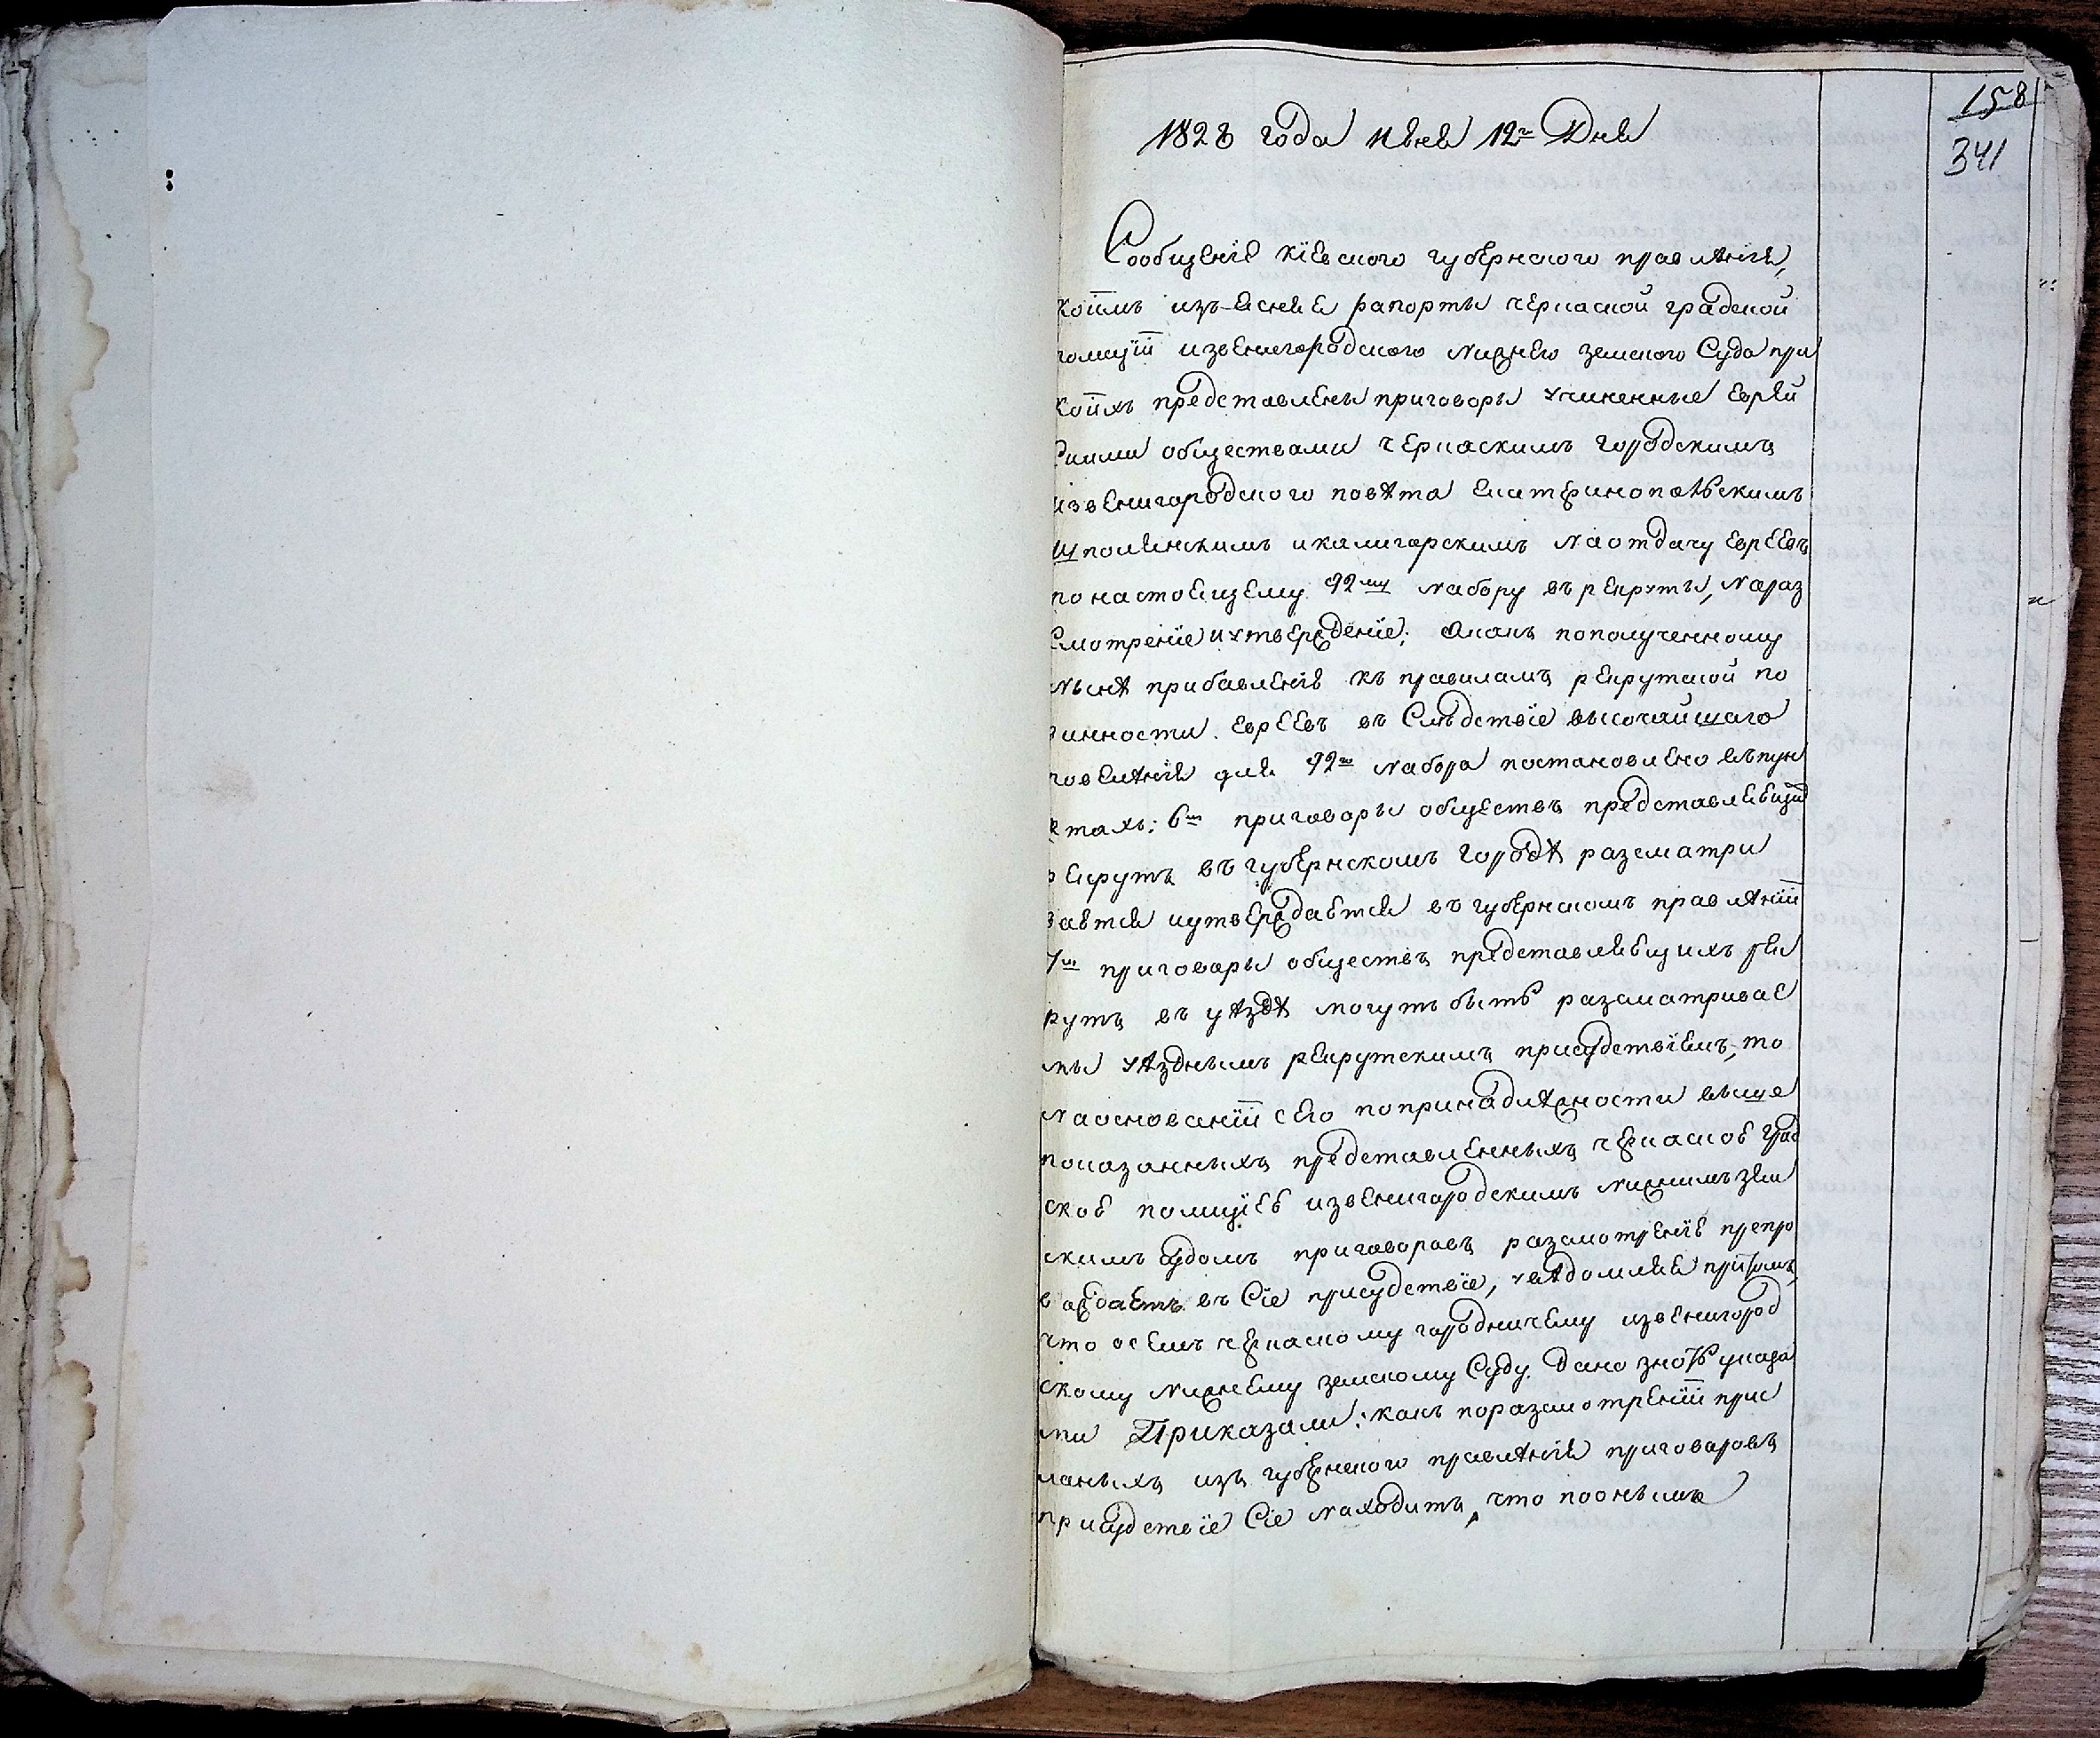 158
341
1828 года июня 12го Дня
Сообщенiе кiевского губернского правлѣнiя,
коимъ изъясняя рапорты черкаской градской
полицiи извенигородского нижнего земского Суда при
коихъ представлены приговоры учиненные еврей
скими обществами черкаскимъ городскимъ
извенигородского повѣта екатеринопольскимъ
шполянскимъ икалигорскимъ наотдачу евреевъ
понастоящему 92му набору въ рекруты, нараз
смотренiе иутвержденiе; акакъ пополученному
нынѣ прибавленiю къ правиламъ рекрутской по
винности евреевъ въ Слѣдствiе высочайшаго
повелѣнiя для 92го набора постановлено въпун
ктахъ: 6м приговоры обществъ представляющих
рекрутъ въ губернскомъ городѣ разсматри
ваются иутверждаются въ губернскомъ правлѣнiи
7м приговоры обществъ представляющихъ рек
рутъ въ уѣздѣ могутъ быть разсматривае
мы уѣзднымъ рекрутскимъ присудствiемъ, то
наоснованiи сего попринадлѣжности выше
показанныхъ представленныхъ черкаскою град
скою полицiею извенигородскимъ нижнимъ зем
скимъ судомъ приговоровъ разсмотренiе препро
вождаетъ въ Сiе присудствiе, увѣдомляя притомъ,
что осемъ черкаскому городничему извенигород
скому нижнему земскому Суду. Дано знать указа
ми Приказали: какъ поразсмотренiи прис
ланыхъ изъ губернского правлѣнiя приговоровъ
присудствiе Сiе находитъ, что поонымъ